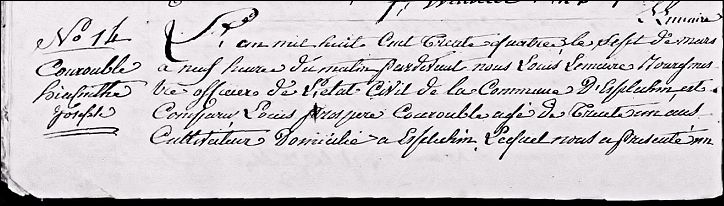 Lemaire
No 14
Courouble
hiacinthe
joseph
L'an mil huit Cent Trente quatre le sept de mars
a neuf heure du matin pardevant nous Louis Lemaire Bourgmes
tre officier de l'etat Civil de la Commune D'Esplechin, est
Comparu Louis prospere Courouble agé de Trente un ans
Cultivateur Domicilié a Esplechin, Lequel nous a presenté un